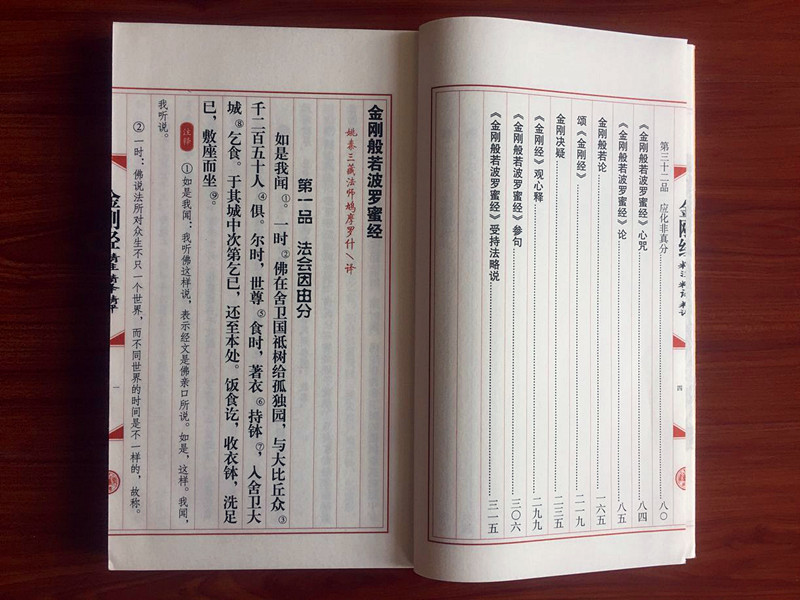 第三十二品 应化非真分……八〇
《金刚般若波罗蜜经》心咒……八四
《金刚般若波罗蜜经》论……八五
金刚般若论……一六五
颂《金刚经》……二一九
金刚决疑……二三五
《金刚经》观心释……二九九
《金刚般若波罗蜜经》参句……三〇六
《金刚般若波罗蜜经》受持法略说……三一五
四
金刚般若波罗蜜经
姚秦三藏法师鸠摩罗什\译
第一品 法会因由分
如是我闻①。一时②佛在舍卫国祇树给孤独园，与大比丘众③
千二百五十人④俱。尔时，世尊⑤食时，著衣⑥持钵⑦，入舍卫大
城⑧乞食。于其城中次第乞已，还至本处。饭食讫，收衣钵，洗足
已，敷座而坐⑨。
注释
①如是我闻：我听佛这样说，表示经文是佛亲口所说。如是，这样。我闻，
我听说。
②一时：佛说法所对众生不只一个世界，而不同世界的时间是不一样的，故称。
一